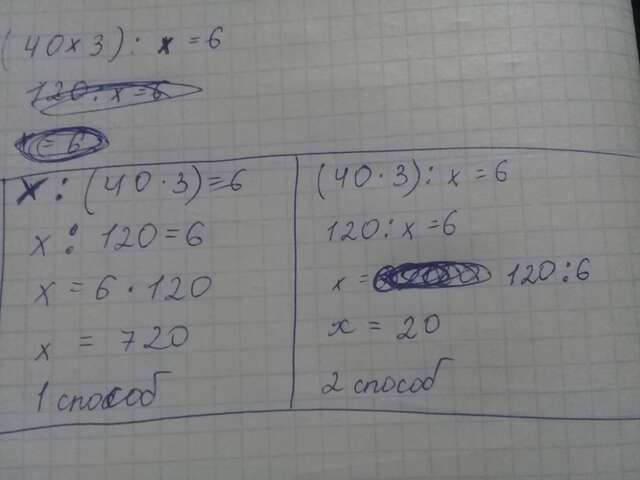 (40x3) : x = 6
120 : x = 6
x = 6
x : (40 · 3) = 6
x : 120 = 6
x = 6 · 120
x = 720
1 способ
(40 · 3) : x = 6
120 : x = 6
x = 120 : 6
x = 20
2 способ